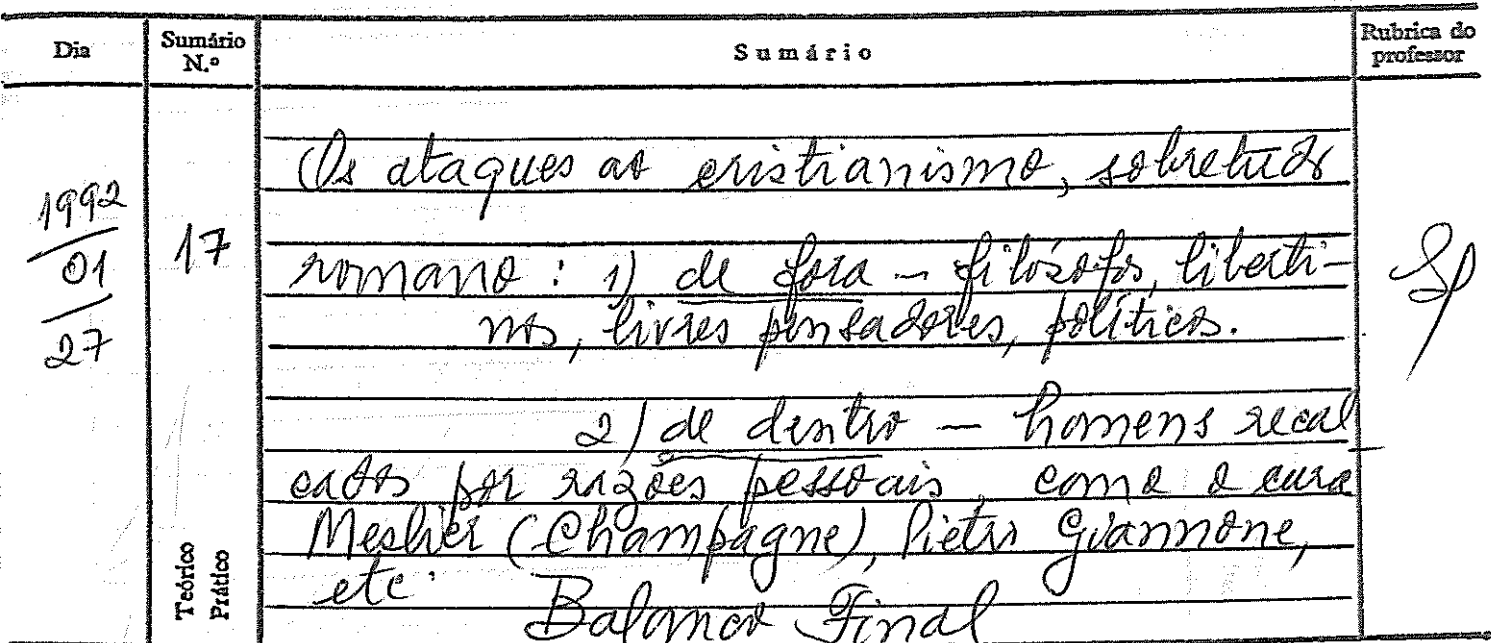 Dia
Sumário N.º
Sumário
Rubrica do professor
1992
01
27
17
Os ataques ao cristianismo, sobretudo
romano: 1) de fora – filósofos, liberti-
nos, livres pensadores, políticos.
2) de dentro – homens recal
cados por razões pessoais, como o cura
Meslier (Champagne), Pietro Giannone,
etc.
Balanço Final
Teórico
Prático